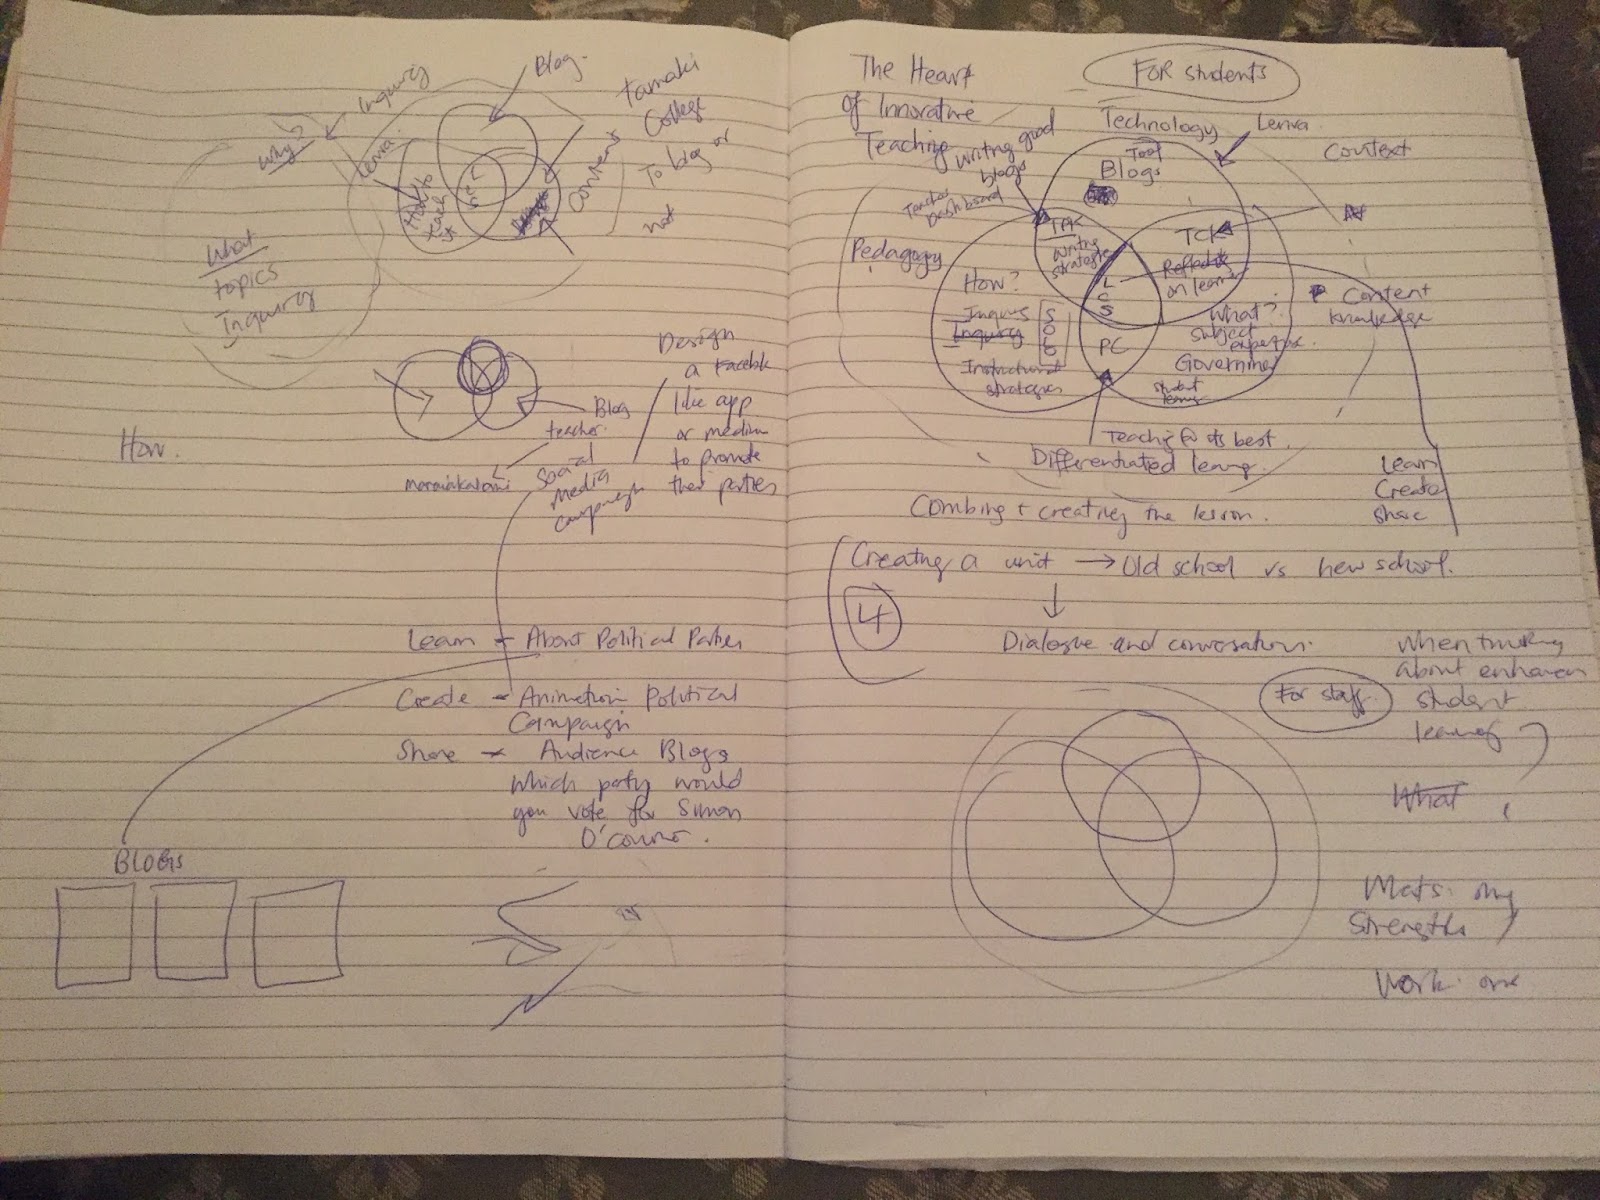 Blog.
Inquiry
Why?
Lenva
How to
teach
it
Content
Tamaki
College
To blog or
not
What
topics
Inquiry
Design
a
like app
or medium
to promote
their parties
Blog
teacher.
Social
Media
campaign
How.
Learn - About Political Parties
Create - Animation Political
Campaign
Share - Audience Blogs
Which party would
you vote for Simon
O'Connor.
BLOGS
The Heart
Of Innovative
Teaching
FOR students
Writing good
blogs
Teacher
Dashboard
Technology
Tool
Blogs
Lenva
Context
Pedagogy
TPK
Writing
strategies
TCK
Reflective
on learning
L
C
S
How?
Inquiry
Inquiry
SOLO
Instructional
strategies
PC
What?
Subject
expertise.
Government
student
learning
Content
knowledge
Teaching @ its best.
Differentiated learning.
Combing + creating the lesson.
Learn
Create
Share
Creating a unit → Old school vs new school.
4
Dialogue and conversation.
For staff.
When thinking
about enhancen
student
learning
What
strengths
Work. one